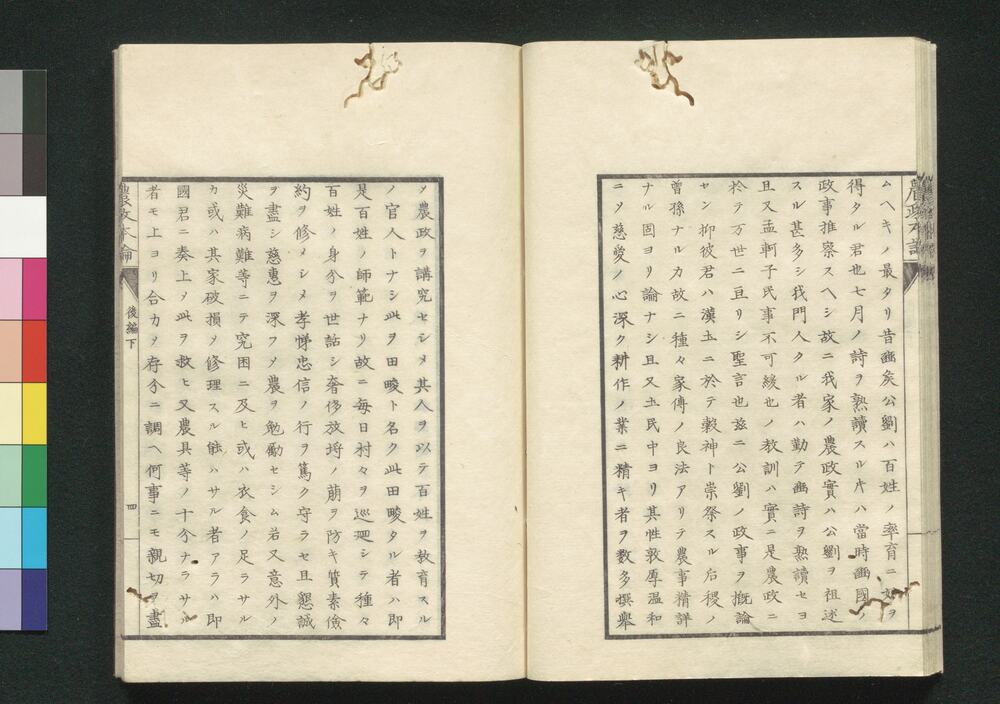 農政本論
ムヘキノ最タリ昔豳矦公劉ハ百姓ノ率育ニ妙ヲ
得タル君也七月ノ詩ヲ熟讀スル片ハ當時豳國ノ
政事推察スヘシ故ニ我家ノ農政實ハ公劉ヲ祖述
スル甚多シ我門人タル者ハ勤テ豳詩ヲ熟讀セヨ
且又孟軻子民事不可緩也ノ教訓ハ實ニ是農政ニ
於テ万世ニ亘リシ聖言也兹ニ公劉ノ政事ヲ概論
セン抑彼君ハ漢土ニ於テ穀神ト崇祭スル后稷ノ
曾孫ナルカ故ニ種々家傳ノ良法アリテ農事精詳
ナル固ヨリ論ナシ且又土民中ヨリ其性敦厚温和
ニソ慈愛ノ心深ク耕作ノ業ニ精キ者ヲ数多撰舉
メ農政ヲ講究セシメ其人ヲ以テ百姓ヲ教育スル
ノ官人トナシ此ヲ田畯ト名ク此田畯タル者ハ即
是百姓ノ師範ナリ故ニ每日村々ヲ巡廻シテ種々
百姓ノ身分ヲ世話シ奢侈放埒ノ萠ヲ防キ質素儉
約ヲ修メシメ孝悌忠信ノ行ヲ篤ク守ラセ且懇誠
ヲ盡シ慈惠ヲ深フメ農ヲ勉勵セシム若又意外ノ
災難病難等ニテ究困ニ及ヒ或ハ衣食ノ足ラサル
カ或ハ其家破損ソ修理スル能ハサル者アラハ即
國君ニ奏上ソ此ヲ救ヒ又農具等ノ十分ナラサル
者モ上ヨリ合力ソ存分ニ調ヘ何事ニモ親切ヲ盡
農政本論
後編下
四